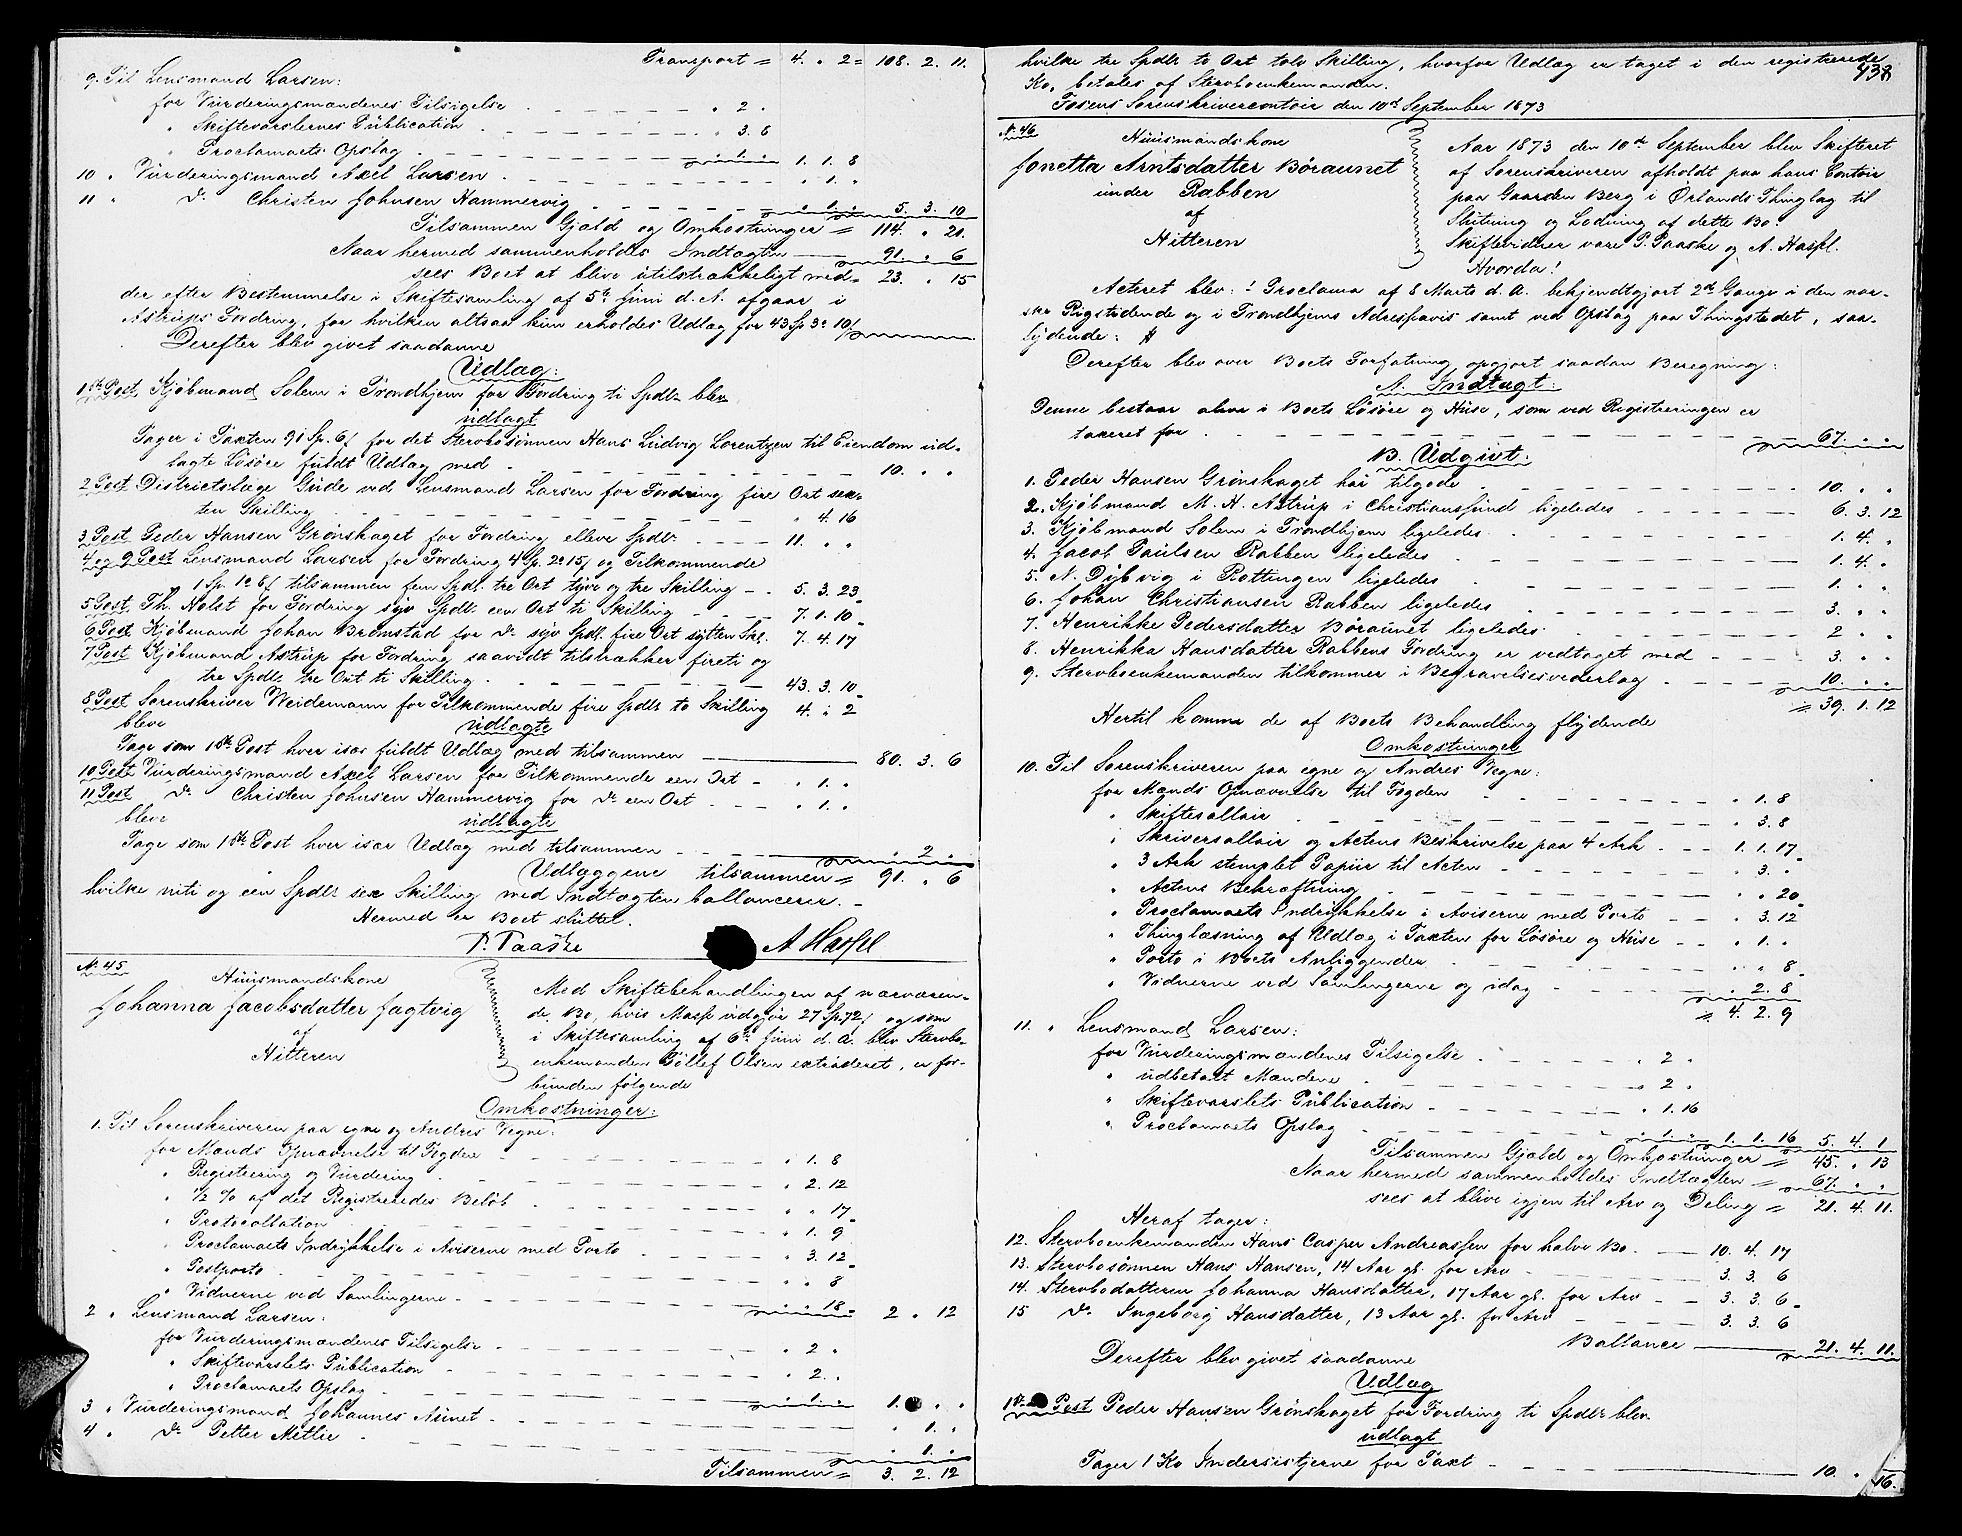 Transport = 4. " 2 = 108. 2. 11.
9. Til Lensmand Larsen:
for Vurderingsmændenes Tilsigelse " 2 "
" Skiftevarslernes Publication " 3. 6
" Proclamaets Opslag " 1. " 1. 1. 8
10 " Vurderingsmand Axel Larsen " 1. "
11 " Do Christen Johnsen Hammervig " 1. " 5. 3. 10
Tilsammen Gjæld og Omkostninger = 114. " 21.
Naar hermed sammenholdes Indtægten 91. " 6
sees Boet at blive utilstrækkeligt med = 23. " 15
der efter Bestemmelse i Skiftesamling af 5te Juni d. A. afgaar i
Astrups Fordring, for hvilken altsaa kun erholdes Udlæg for 43 Sp 3 10
Derefter blev givet saadanne
Udlæg:
1ste Post Kjøbmand Solem i Trondhjem for Fordring ti Spdlr blev
udlagt
Tager i Taxten 91 Sp. 6 for det Stervbosønnen Hans Ludvig Lorentzen til Eiendom ud-
lagte Løsøre fuldt Udlæg med 10. " "
2 Post Districtslæge Gude ved Lensmand Larsen for Fordring fire Ort sex-
ten Skilling " 4. 16
3 Post Peder Hansen Grønskaget for Fordring elleve Spdlr 11. " "
4 og 9 Post Lensmand Larsen for Fordring 4 Sp. 2 15 og Tilkommende
1 Sp. 1 8 tilsammen fem Spdlr tre Ort tyve og tre Skilling 5. 3. 23
5 Post Th. Holst for Fordring syv Spdlr een Ort ti Skilling 7. 1. 10
6 Post Kjøbmand Johan Bromstad for Do syv Spdlr fire Ort sytten Skl. 7. 4. 17
7 Post Kjøbmand Astrup for Fordring saavidt tilstrækker firti og
tre Spdlr tre Ort ti Skilling 43. 3. 10
8 Post Sorenskriver Weidemann for Tilkommende fire Spdlr to Skilling 4. " 2
bleve udlagte
Tage som 1ste Post hver især fuldt Udlæg med tilsammen 80. 3. 6
10 Post Vurderingsmand Axel Larsen for Tilkommende een Ort " 1. "
11 Post Do Christen Johnsen Hammervig for Do een Ort " 1. "
bleve udlagte
Tage som 1ste Post hver især Udlæg med tilsammen " 2 "
Udlæggene tilsammen = 91. " 6
hvilke niti og een Spdlr sex Skilling med Indtægten ballancerer.
Hermed er Boet sluttet.
P. Paaske A Hassel
No 45
Huusmandskone
Johanna Jacobsdatter Jagtvig
af
Hitteren
Med Skiftebehandlingen af nærværen-
de Bo, hvis Masse udgjør 27 Sp 72 og som
i Skiftesamling af 6te Juni d. A. blev Stervbo-
enkemanden Tollef Olsen extraderet, er for-
bunden følgende
Omkostninger:
1. Til Sorenskriveren paa egne og Andres Vegne:
for Mænds Opnævnelse til Fogden " 1. 8
" Registrering og Vurdering " 2. 12
" 1/2 % af det Registreredes Beløb " " 17
" Protocollation " 1. 9
" Proclamaets Indrykkelse i Aviserne med Porto " 3. 12
" Postporto " " 8
" Vidnerne ved Samlingerne " " 18 2 " 12
2 " Lensmand Larsen:
for Vurderingsmændenes Tilsigelse " 2 "
" Skiftevarslets Publication " 2. "
" Proclamaets Opslag " 1. " 1. " "
3 " Vurderingsmand Johannes Aunet " 1. "
4 " Do Petter Metlie " 1. "
Tilsammen = 3. 2. 12
438
hvilke tre Spdlr to Ort tolv Skilling, hvorfor Udlæg er taget i den registrerede
Ko, betales af Stervboenkemanden.
Fosens Sorenskrivercontoir den 10de September 1873
No 46
Huusmandskone
Jonetta Arntsdatter Børaunet
under Rabben
af
Hitteren
Aar 1873 den 10de September blev Skifteret
af Sorenskriveren afholdt paa hans Contoir
paa Gaarden Berg i Ørlands Thinglag til
Slutning og Lodning af dette Bo.
Skiftevidner vare P. Paaske og A. Hassel.
Hvorda!
Acteret blev: Proclama af 8 Marts d. A. bekjendtgjort 2de Gange i den nor-
ske Rigstidende og i Trondhjems Adresseavis samt ved Opslag paa Thingstedet, saa-
lydende:
Derefter blev over Boets Forfatning opgjort saadan Beregning:
A. Indtægt:
Denne bestaar alene i Boets Løsøre og Huse, som ved Registreringen er
taxeret for 67. " "
B. Udgivt:
1. Peder Hansen Grønskaget har tilgode 10. " "
2. Kjøbmand M. H. Astrup i Christiansund ligeledes 6. 3. 12
3. Kjøbmand Solem i Trondhjem ligeledes 1. 4. "
4. Jacob Paulsen Rabben ligeledes 1. 4. "
5. N. Dybvig i Rottingen ligeledes 1. " "
6. Johan Christiansen Rabben ligeledes 3. " "
7. Henrikke Pedersdatter Børaunet ligeledes 2 " "
8. Henrikka Hansdatter Rabbens Fordring er vedtaget med 3. " "
9. Stervboenkemanden tilkommer i Begravelsesvederlag 10. " "
= 39. 1. 12
Hertil komme de af Boets Behandling flydende
Omkostninger
10. Til Sorenskriveren paa egne og Andres Vegne:
for Mænds Opnævnelse til Fogden " 1. 8
" Skiftesallair " 3. 8
" Skriversallair og Actens Beskrivelse paa 4 Ark 1. 1. 17
" 3 Ark stemplet Papiir til Acten " 3. "
" Actens Bekræftning " " 20
" Proclamaets Indrykkelse i Aviserne med Porto " 3. 12
" Thinglæsning af Udlæg i Taxten for Løsøre og Huse " 1. "
" Porto i Boets Anliggender " " 8
" Vidnerne ved Samlingerne og idag " 2. 8
= 4. 2. 9
11. " Lensmand Larsen:
for Vurderingsmændenes Tilsigelse " 2 "
" udbetalt Mændene " 2 "
" Skiftevarslets Publication " 1. 16
" Proclamaets Opslag " 1. " 1. 1. 16 5. 4. 1
Tilsammen Gjæld og Omkostninger = 45. " 13
Naar hermed sammenholdes Indtægten = 67. " "
sees at blive igjen til Arv og Deling = 21. 4. 11.
Heraf tager:
12. Stervboenkemanden Hans Casper Andreassen for halve Bo 10. 4. 17
13. Stervbosønnen Hans Hansen, 14 Aar gl. for Arv 3. 3. 6
14. Stervbodatteren Johanna Hansdatter, 17 Aar gl. for Arv 3. 3. 6
15 Do Ingeborg Hansdatter, 13 Aar gl. for Arv 3. 3. 6
Ballance 21. 4. 11.
Derefter blev givet saadanne
Udlæg
1ste Post Peder Hansen Grønskaget for Fordring ti Spdlr blev
udlagt
Tager 1 Ko Indersistjerne for Taxt 10. " "
16.